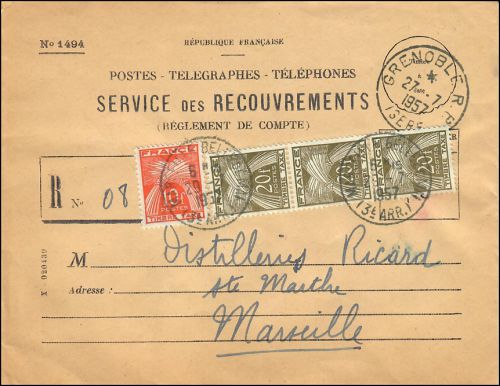 No 1494
RÉPUBLIQUE FRANÇAISE
POSTES - TELEGRAPHES - TÉLÉPHONES
SERVICE DES RECOUVREMENTS
(RÉGLEMENT DE COMPTE)
GRENOBLE R.P.
27-7
1957
ISÈRE
R No 08
FRANCE
POSTES
TIMBRE TAXE
FRANCE
20F
TIMBRE TAXE
FRANCE
20F
TIMBRE TAXE
FRANCE
20F
TIMBRE TAXE
1957
(3E ARR.T)
1957
(3E ARR.T)
M Distilleries Ricard
Adresse : Ste Marthe
Marseille
X 020439